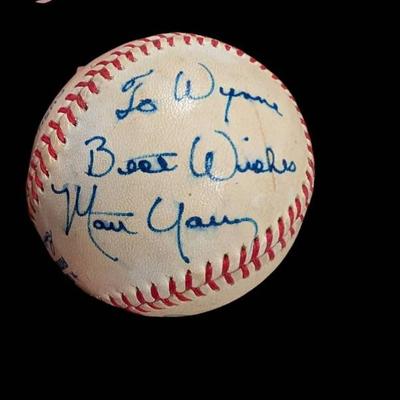 To Wynne
Best Wishes
Matt Young